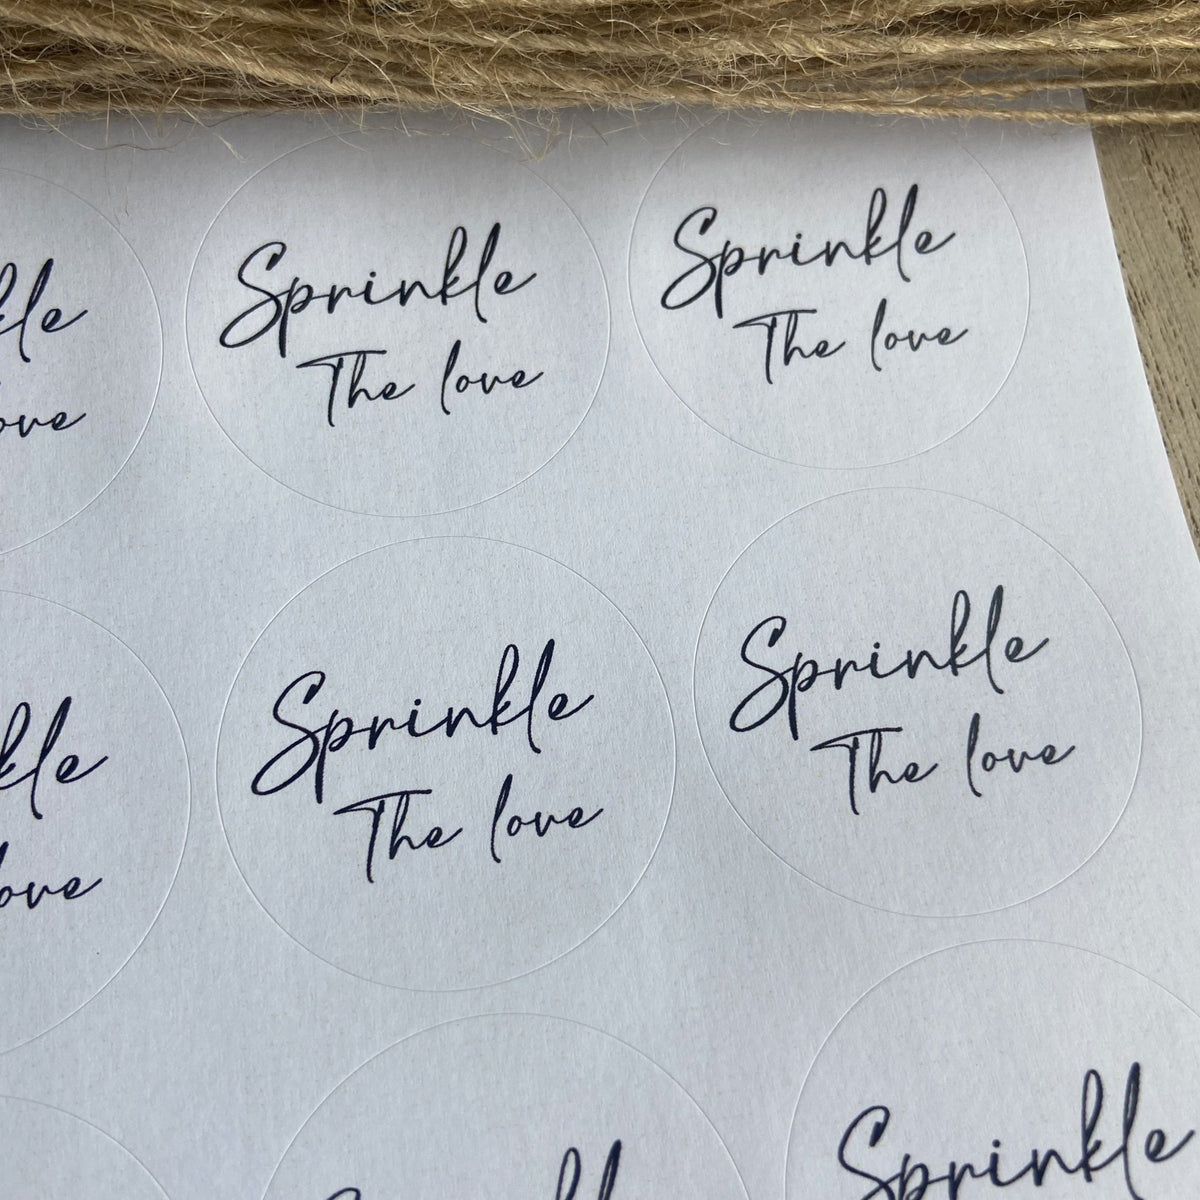 kle
ove
Sprinkle
The love
Sprinkle
The love
kle
ove
Sprinkle
The love
Sprinkle
The love
Sprinkle